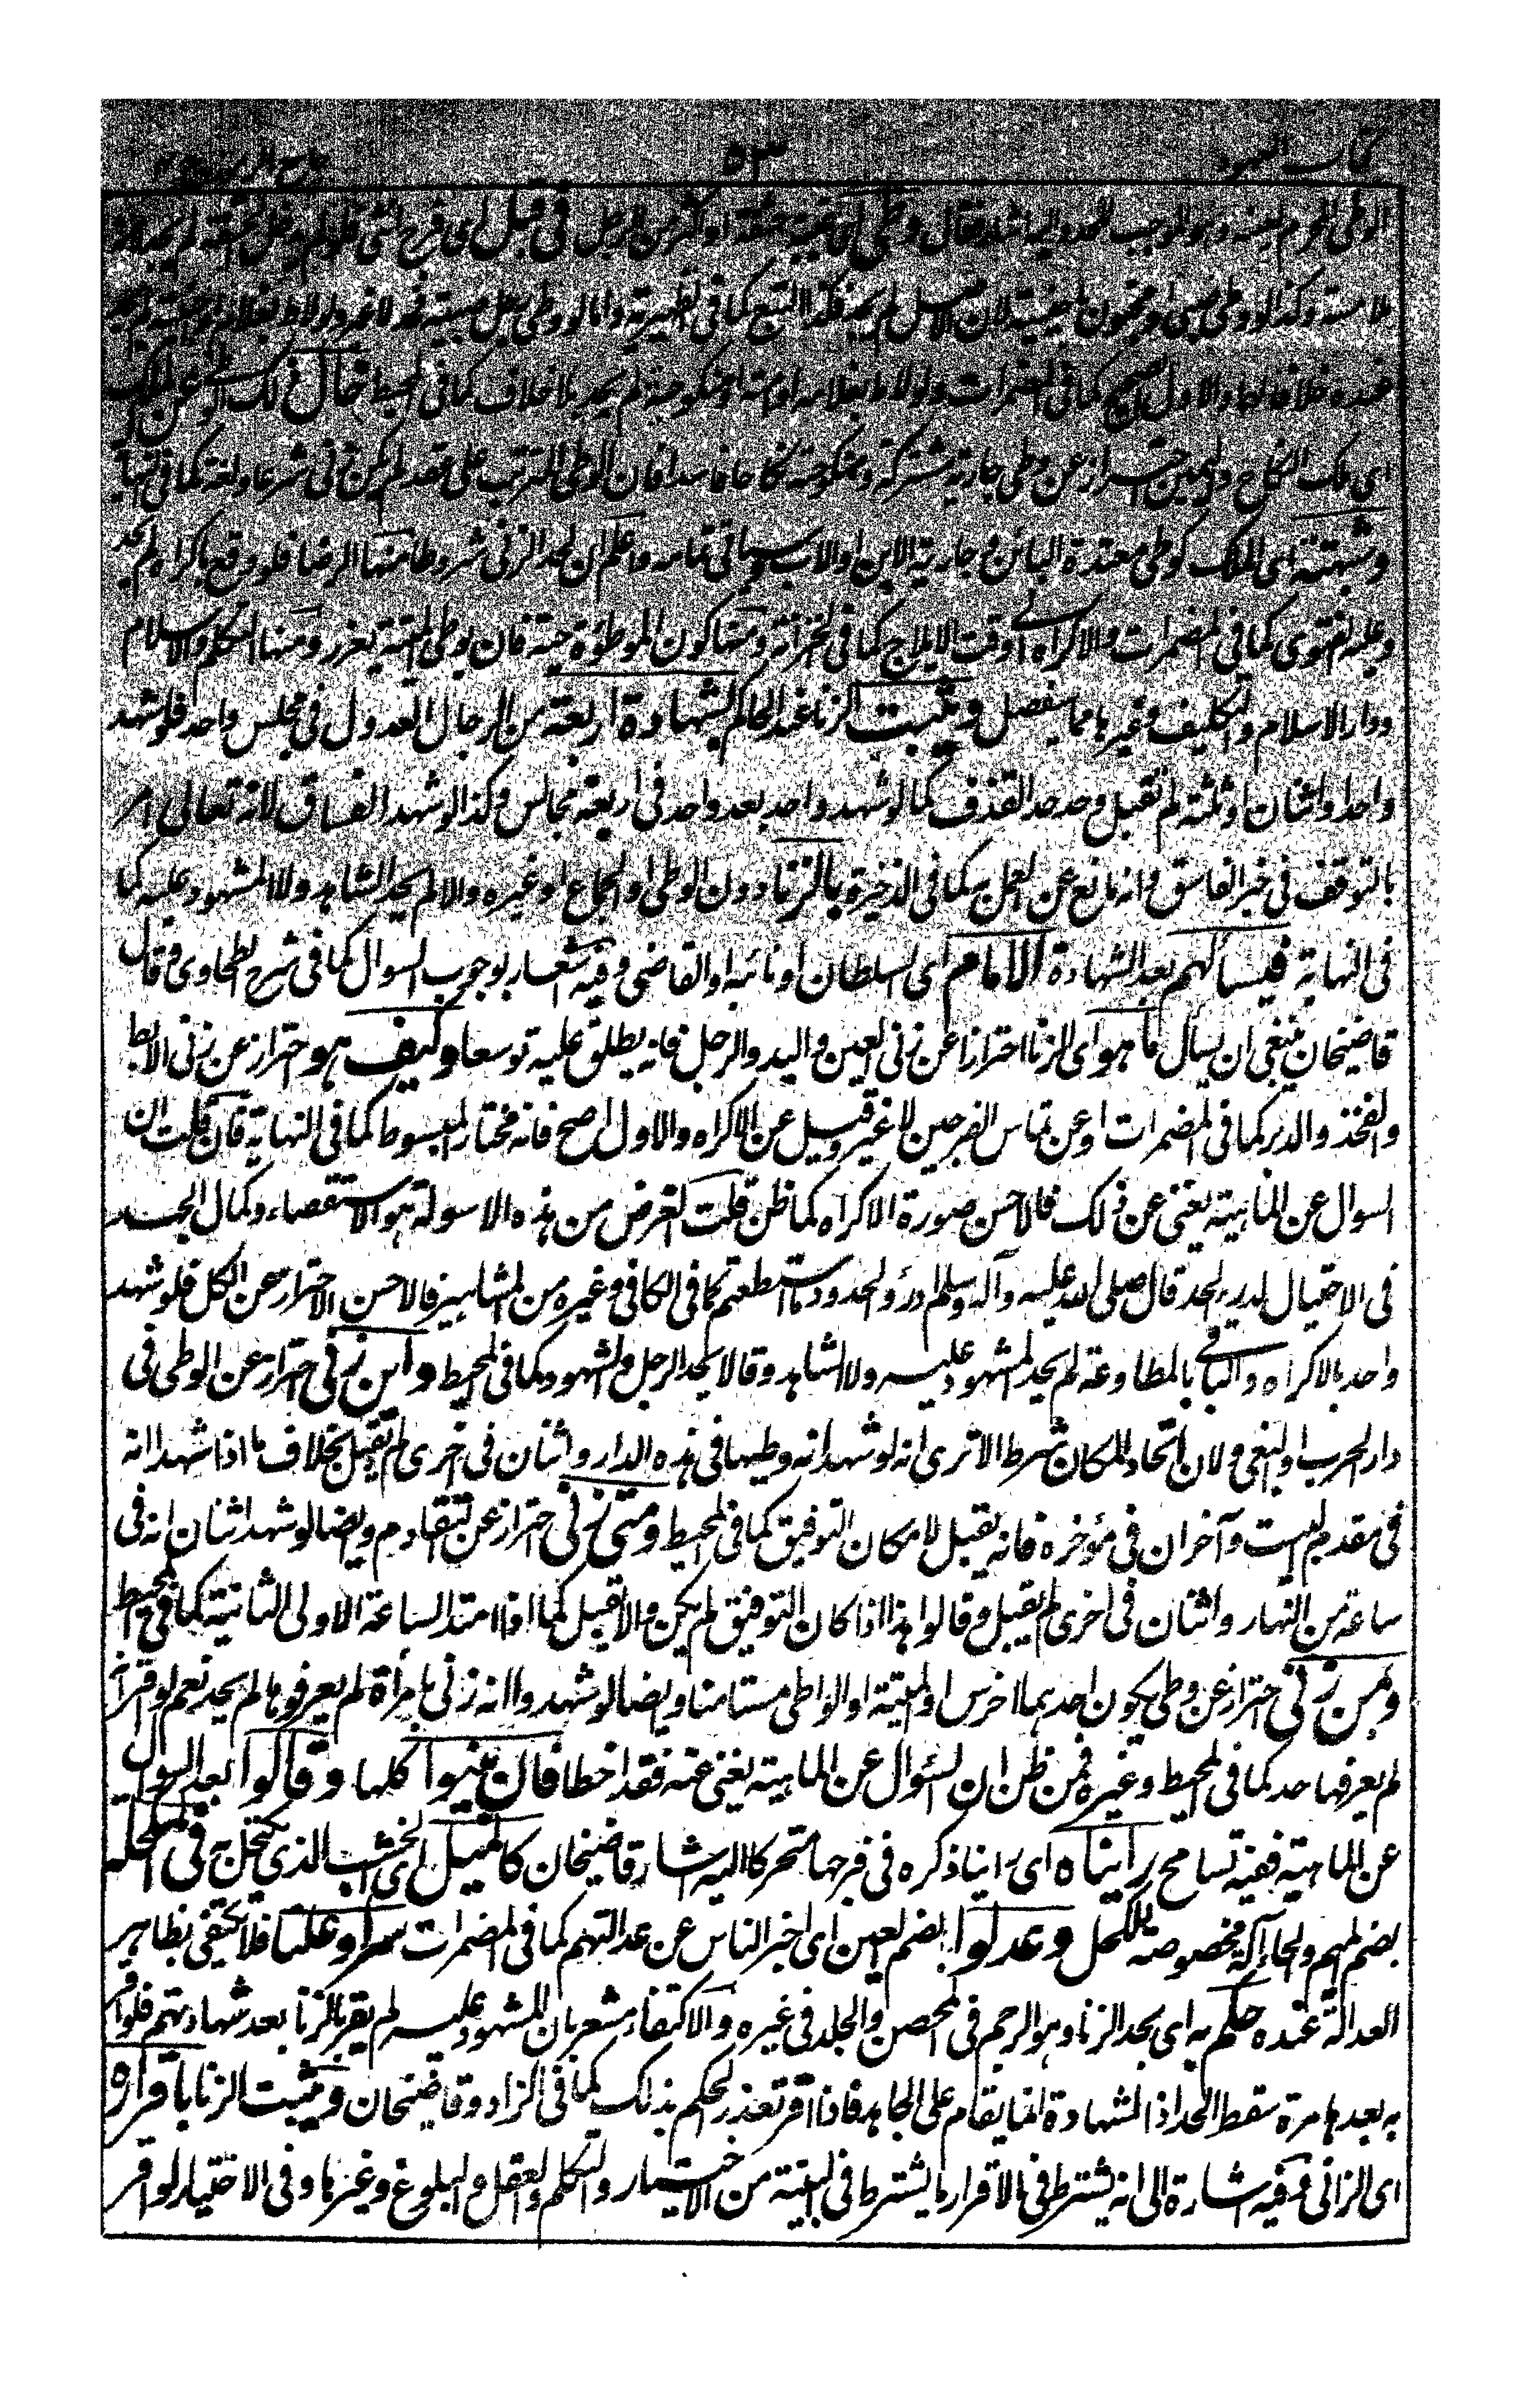 كتاب الحدود ٥٣ جامع الرموز
الوطى المحرم لعينه وهو الموجب للحد واليه اشار فقال وطى اى غيبة حشفة او اكثر من الرجل فى قبل اى فرج انثى فلو لم يدخل الحشفة لم يحد
ملامسة وكذا لو وطى صبى او مجنون اجنبية لان الاصل لم يحد فكذا التبع كما فى الظهيرية
خلافا لهما والاول الصحيح كما فى المضمرات ولو لاط بغلامه او امته او منكوحته لم يحد بلا خلاف كما فى المحيط خال ذلك الوطى عن الملك
اى ملك النكاح واليمين احتراز عن وطى جارية مشتركة ومنكوحة نكاحا فاسدا فان الوطى المترتب على عقد لم يكن زنى شرعا ولغة كما فى النهاية
وشبهته اى الملك كوطى معتدة البائن وجارية الابن او الاب وسياتى تمامه واعلم ان لحد الزنى شروطا منها الرضا فلو وقع باكراه لم يحد
وعليه الفتوى كما فى المضمرات والاكراه الى وقت الايلاج كما فى الخزانة ومنها كون الموطوءة حية فان بوطى الميتة يعزر ومنها التكلم والاسلام
ودار الاسلام والتكليف وغيرها مما سيفصل ويثبت الزنا عند الحاكم بشهادة اربعة من الرجال العدول فى مجلس واحد فلو شهد
واحد او اثنان او ثلثة لم تقبل وحد حد القذف كما لو شهد واحد بعد واحد فى اربعة مجالس وكذا لو شهد الفساق لانه تعالى امر
بالتوقف فى خبر الفاسق وانه مانع عن العمل به كما فى الذخيرة بالزنا دون الوطى او الجماع او غيره والا لم يحد الشاهد ولا المشهود عليه كما
فى النهاية فيسألهم بعد الشهادة الامام اى السلطان او نائبه او القاضى وفيه اشعار بوجوب السوال كما فى شرح الطحاوى وقال
قاضيخان ينبغى ان يسأل ما هو اى الزنا احترازا عن زنى العين واليد والرجل فانه يطلق عليه توسعا وكيف هو احتراز عن زنى الابط
والفخذ والدبر كما فى المضمرات او عن تماس الفرجين لا غير وقيل عن الاكراه والاول اصح فانه مختار المبسوط كما فى النهاية فان قلت ان
السوال عن الماهية يغنى عن ذلك فالاحسن صورة الاكراه كما ظن قلت الغرض من هذه الاسولة هو الاستقصاء وكمال الجد
فى الاحتيال لدرء الحد قال صلى الله عليه وآله وسلم ادرؤ الحدود ما استطعتم كما فى الكافى وغيره من المشاهير فالاحسن الاحتراز عن الكل فلو شهد
واحد بالاكراه والباقى بالمطاوعة لم يحد المشهود عليه ولا الشاهد وقالا يحد الرجل والشهود كما فى المحيط واين زنى احتراز عن الوطى فى
دار الحرب او البغى ولان اتحاد المكان شرط الا ترى انه لو شهد انه وطيها فى هذه الدار واثنان فى اخرى لم تقبل بخلاف ما اذا شهد انه
فى مقدم البيت وآخران فى مؤخره فانه يقبل لامكان التوفيق كما فى المحيط ومتى زنى احتراز عن التقادم وايضا لو شهد اثنان انه فى
ساعة من النهار واثنان فى اخرى لم يقبل وقالوا هذا اذا كان التوفيق لم يكن والا تقبل كما اذا امتد الساعة الاولى الثانية كما فى المحيط
وبمن زنى احتراز عن وطى يكون احدهما اخرس او الميتة او الواطى مستامنا وايضا لو شهدوا انه زنى بامرأة لم يعرفوها لم يحد نعم لو اقر انه
لم يعرفها حد كما فى المحيط وغيره فمن ظن ان السؤال عن الماهية يغنى عنه فقد اخطا فان بينوا كلها وقالوا بعد السوال
عن الماهية ففيه تسامح رايناه اى راينا ذكره فى فرجها متحركا اليه اشار قاضيخان كالميل اى الخشب الذى يكتحل به فى المكحلة
بضم الميم والحاء آلة مخصوصة للكحل وعدلوا بضم العين اى اخبر الناس عن عدالتهم كما فى المضمرات سرا وعلنا فلا يكتفى بظاهر
العدالة عنده حكم به اى بحد الزنا وهو الرجم فى المحصن والجلد فى غيره والاكتفاء مشعر بان المشهود عليه لم يقر بالزنا بعد شهادتهم فلو اقر
به بعدها مرة سقط الحد اذ الشهادة انما يقام على الجاحد فاذا اقر تعذر الحكم بذلك كما فى الزاد وقاضيخان ويثبت الزنا باقراره
اى الزانى وفيه اشارة الى انه يشترط فى الاقرار ما يشترط فى البينة من الاختيار والتكلم والعقل والبلوغ وغيرها وفى الاختيار لو اقر